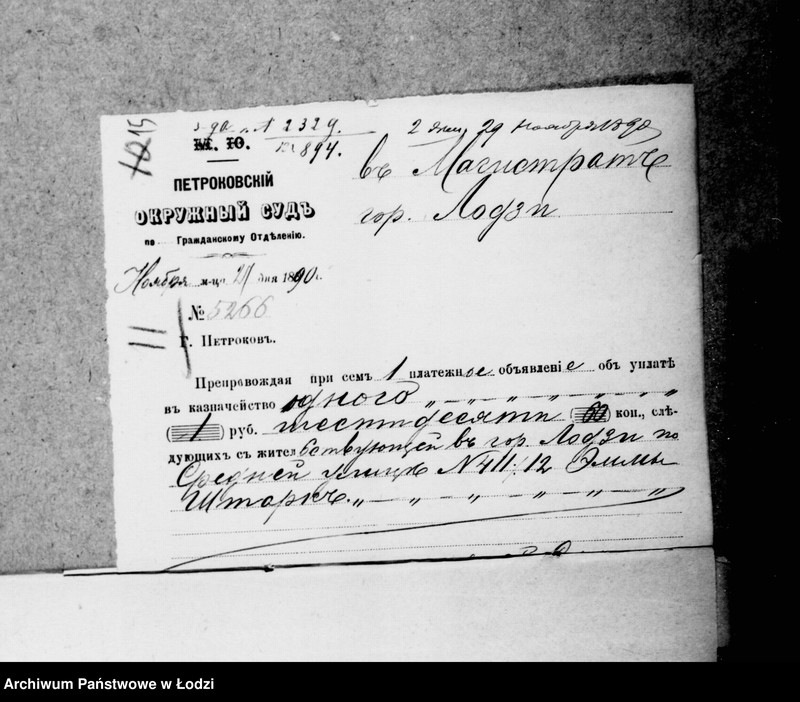 15
№ 2329.
2 29 Ноября 1890
М. Ю.
894.
въ Магистратъ
гор. Лодзи
ПЕТРОКОВСКІЙ
ОКРУЖНЫЙ СУДЪ
по Гражданскому Отдѣленію.
Ноября м-ца дня 1890 г.
№ 5266
11
Г. Петроковъ.
Препровождая при семъ 1 платежное объявленіе объ уплатѣ
въ казначейство одного
(1) руб. шестидесяти (60) коп., слѣ-
дующихъ съ жительствующей въ гор. Лодзи по
Средней улицѣ № 411/12 Эммы
Штаркъ.
Archiwum Państwowe w Łodzi